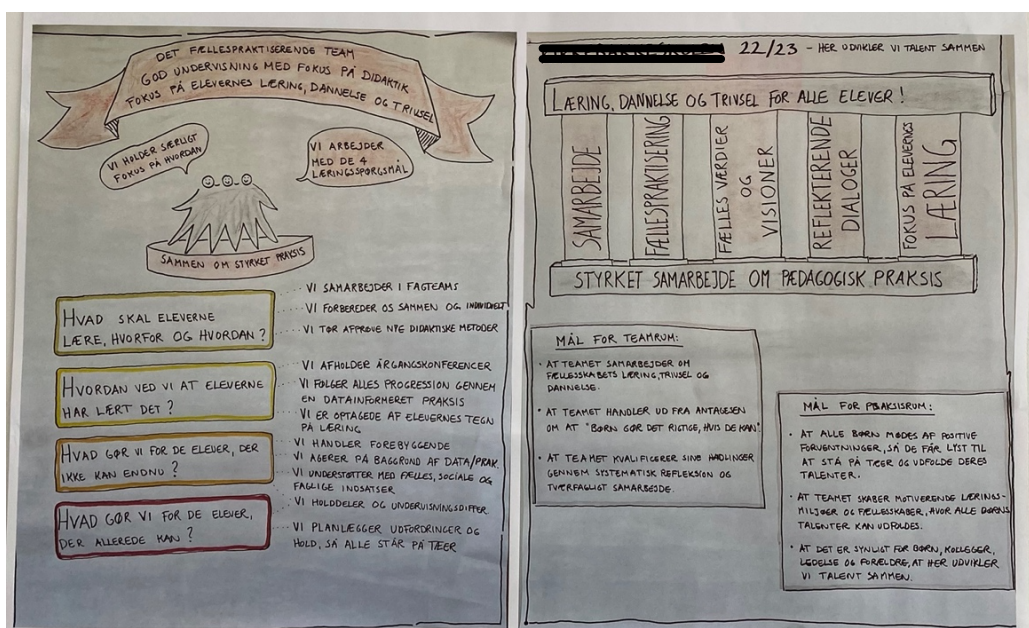 DET FÆLLESPRAKTISERENDE TEAM
GOD UNDERVISNING MED FOKUS PÅ DIDAKTIK
FOKUS PÅ ELEVERNES LÆRING, DANNELSE OG TRIVSEL
VI HOLDER SÆRLIGT
FOKUS PÅ HVORDAN
VI ARBEJDER
MED DE 4
LÆRINGSSPØRGSMÅL
SAMMEN OM STYRKET PRAKSIS
HVAD SKAL ELEVERNE
LÆRE, HVORFOR OG HVORDAN?
VI SAMARBEJDER I FAGTEAMS
VI FORBEREDER OS SAMMEN OG INDIVIDUELT
VI TØR AFPRØVE NYE DIDAKTISKE METODER
HVORDAN VED VI AT ELEVERNE
HAR LÆRT DET?
VI AFHOLDER ÅRGANGSKONFERENCER
VI FØLGER ALLES PROGRESSION GENNEM
EN DATAINFORMERET PRAKSIS
VI ER OPTAGEDE AF ELEVERNES TEGN
PÅ LÆRING
HVAD GØR VI FOR DE ELEVER, DER
IKKE KAN ENDNU?
VI HANDLER FOREBYGGENDE
VI AGERER PÅ BAGGRUND AF DATA/PRAK.
VI UNDERSTØTTER MED FÆLLES, SOCIALE OG
FAGLIGE INDSATSER
HVAD GØR VI FOR DE ELEVER,
DER ALLEREDE KAN?
VI HOLDDELER OG UNDERVISNINGSDIFFER
VI PLANLÆGGER UDFORDRINGER OG
HOLD, SÅ ALLE STÅR PÅ TÆER
22/23 - HER UDVIKLER VI TALENT SAMMEN
LÆRING, DANNELSE OG TRIVSEL FOR ALLE ELEVER!
SAMARBEJDE
FÆLLESPRAKTISERING
FÆLLES VÆRDIER
OG
VISIONER
REFLEKTERENDE
DIALOGER
FOKUS PÅ ELEVERNES
LÆRING
STYRKET SAMARBEJDE OM PÆDAGOGISK PRAKSIS
MÅL FOR TEAMRUM:
• AT TEAMET SAMARBEJDER OM
FÆLLESSKABETS LÆRING, TRIVSEL OG
DANNELSE.
• AT TEAMET HANDLER UD FRA ANTAGESEN
OM AT "BØRN GØR DET RIGTIGE, HVIS DE KAN"
• AT TEAMET KVALIFICERER SINE HANDLINGER
GENNEM SYSTEMATISK REFLEKSION OG
TVÆRFAGLIGT SAMARBEJDE.
MÅL FOR PRAKSISRUM:
• AT ALLE BØRN MØDES AF POSITIVE
FORVENTNINGER, SÅ DE FÅR LYST TIL
AT STÅ PÅ TÆER OG UDFOLDE DERES
TALENTER.
• AT TEAMET SKABER MOTIVERENDE LÆRINGS-
MILJØER OG FÆLLESSKABER, HVOR ALLE BØRNS
TALENTER KAN UDFOLDES.
• AT DET ER SYNLIGT FOR BØRN, KOLLEGER,
LEDELSE OG FORÆLDRE, AT HER UDVIKLER
VI TALENT SAMMEN.